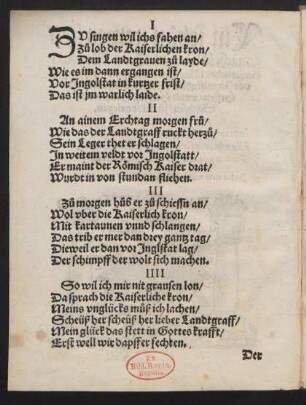 I
ZV singen wil ichs fahen an/
Zů lob der Kaiserlichen kron/
Dem Landtgrauen zů layde/
Wie es im dann ergangen ist/
Vor Ingolstat in kurtzer frist/
Das ist jm warlich laide.
II
An ainem Erchtag morgen frů/
Wie das der Landtgraff ruckt herzů/
Sein Leger thet er schlagen/
In weitem veldt vor Ingolstatt/
Er maint der Römisch Kaiser drat/
Wurdt in von stundan fliehen.
III
Zů morgen hůb er zů schiessn an/
Wol vber die Kaiserlich kron/
Mit kartaunen vund schlangen/
Das trib er mer dan drey gantz tag/
Dieweil er dan vor Inglstat lag/
Der schimpff der wolt sich machen.
IIII
So wil ich mir nit grausen lon/
Da sprach die Kaiserliche kron/
Meins vnglücks můß ich lachen/
Scheüß her scheüß her lieber Landtgraff/
Mein glück das stett in Gottes krafft/
Erst well wir dapffer fechten.
Der
Ex
Bibl. Regia
Berolin.